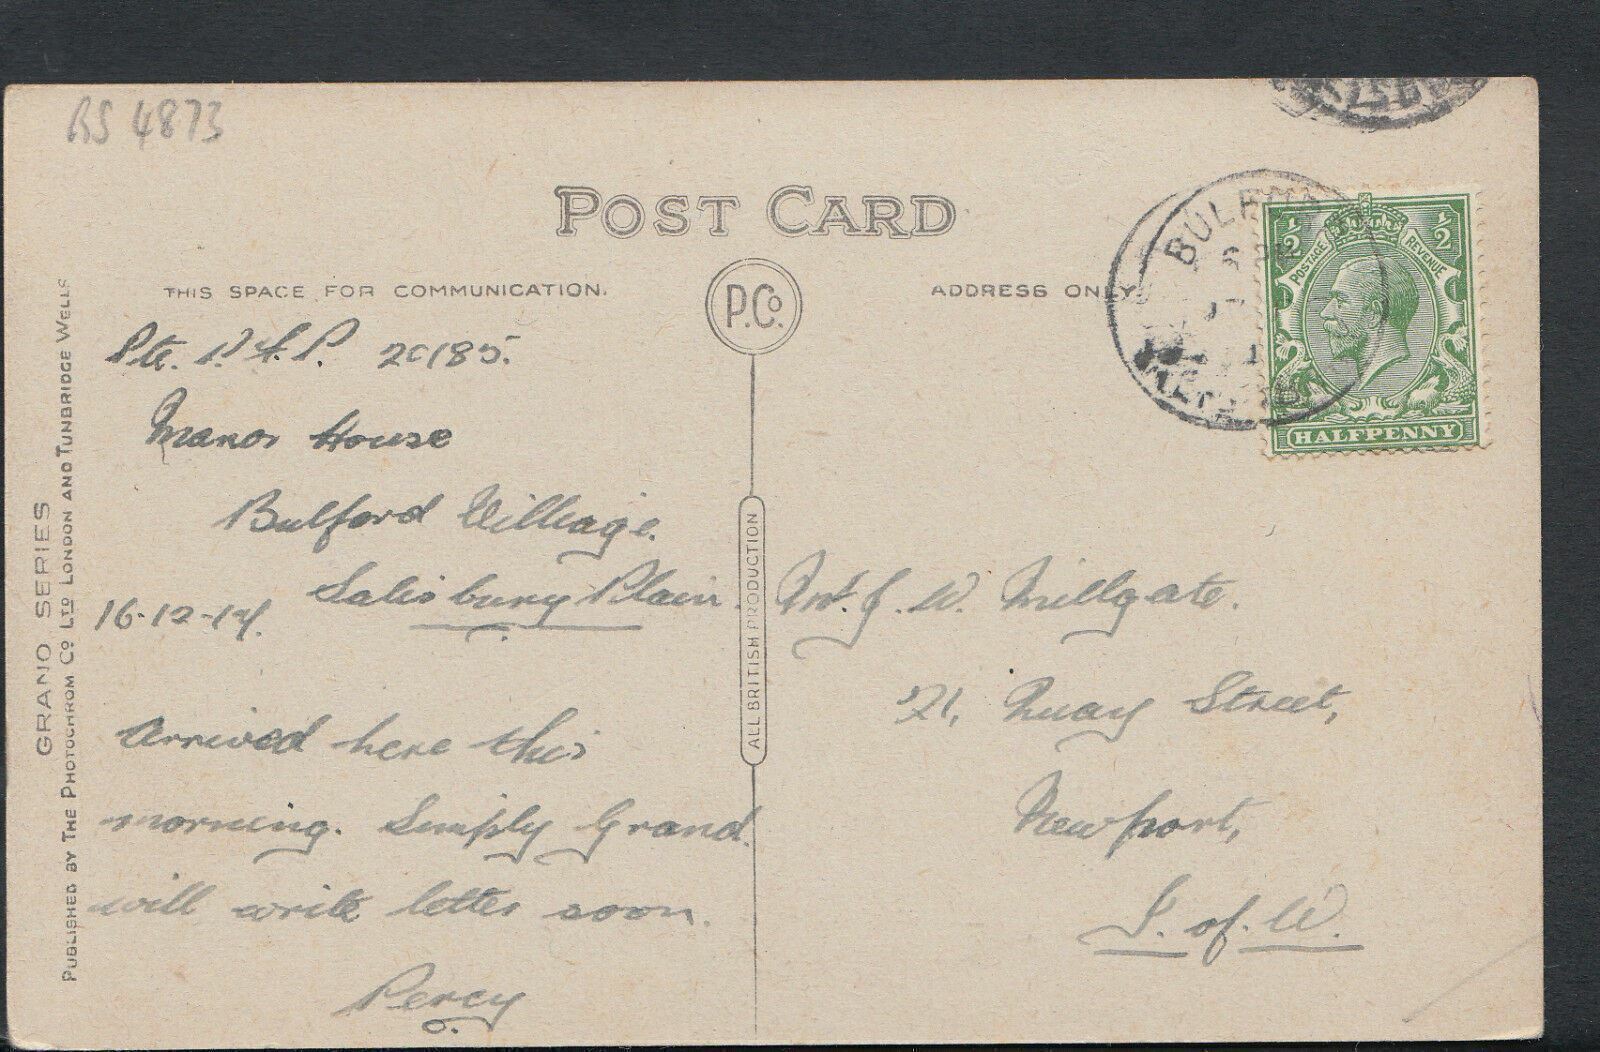 RS 4873
POST CARD
THIS SPACE FOR COMMUNICATION.
ADDRESS ONLY
P.Co.
BULFORD
POSTAGE REVENUE
½ ½
HALFPENNY
GRANO SERIES
PUBLISHED BY THE PHOTOCHROM CO. LTD LONDON AND TUNBRIDGE WELLS
ALL BRITISH PRODUCTION
Pte. P. 20185.
Manor House
Bulford Village.
Salisbury Plain.
16-12-14.
Arrived here this
morning. Simply Grand.
will write letter soon.
Percy
Mr. J. W. Millgate.
21, Quay Street,
Newport,
I. of. W.